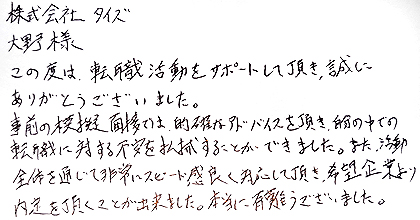 株式会社 タイズ
大野様
この度は、転職活動をサポートして頂き、誠に
ありがとうございました。
事前の模擬面接では、的確なアドバイスを頂き、自分の中での
転職に対する不安を払拭することができました。また、活動
全体を通じて非常にスピード感良く対応して頂き、希望企業より
内定を頂くことが出来ました。本当に有難うございました。